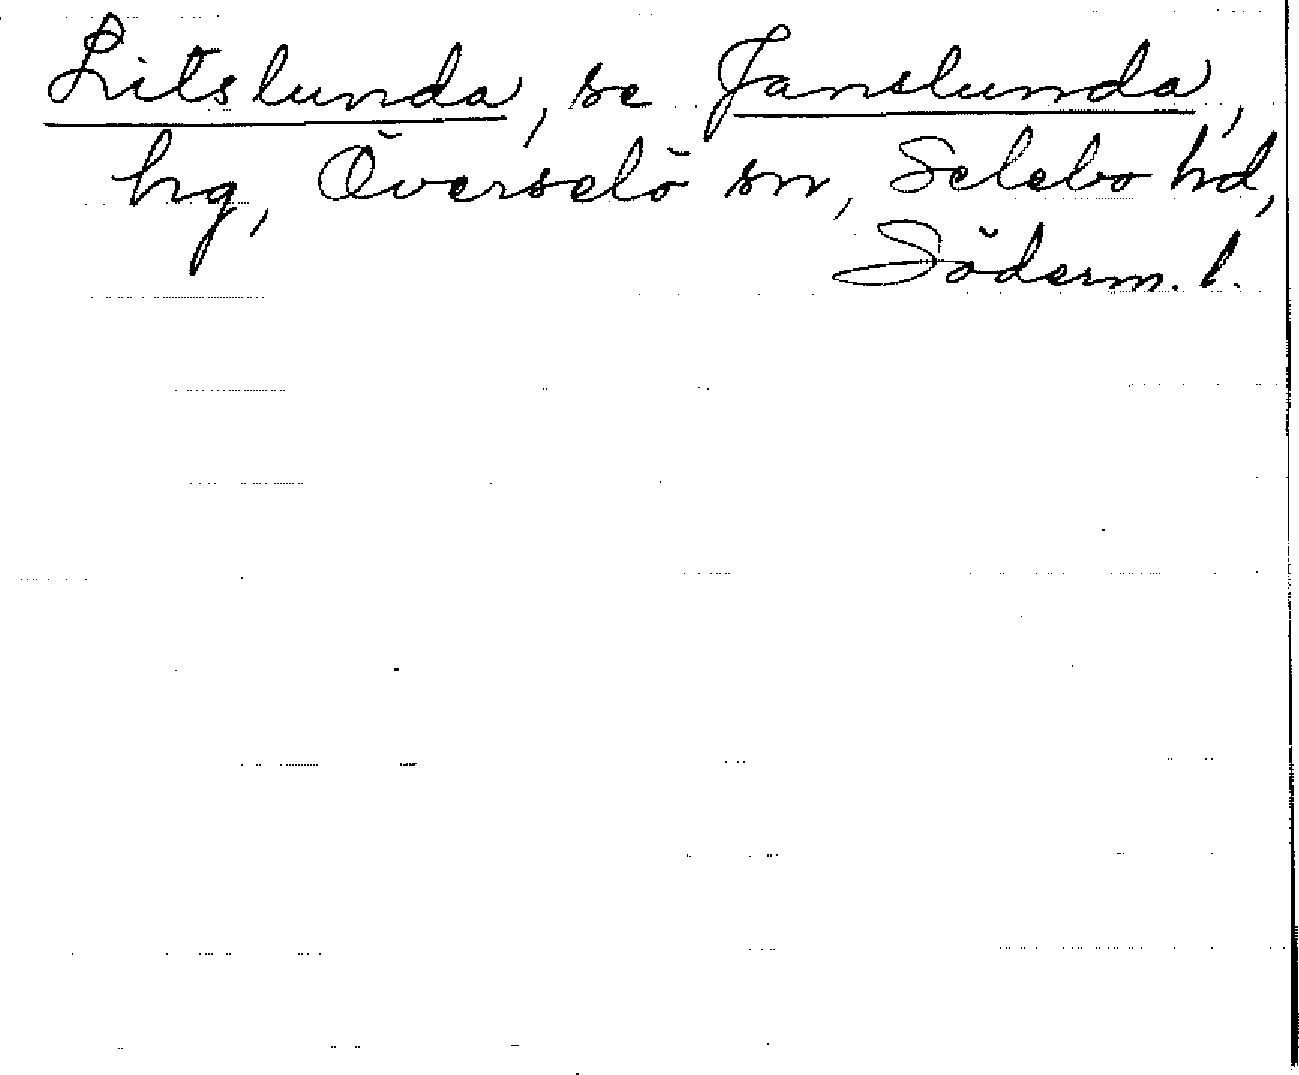 Litslunda, se Janslunda,
hg, Överselö sn, Selebo hd,
Söderm. l.